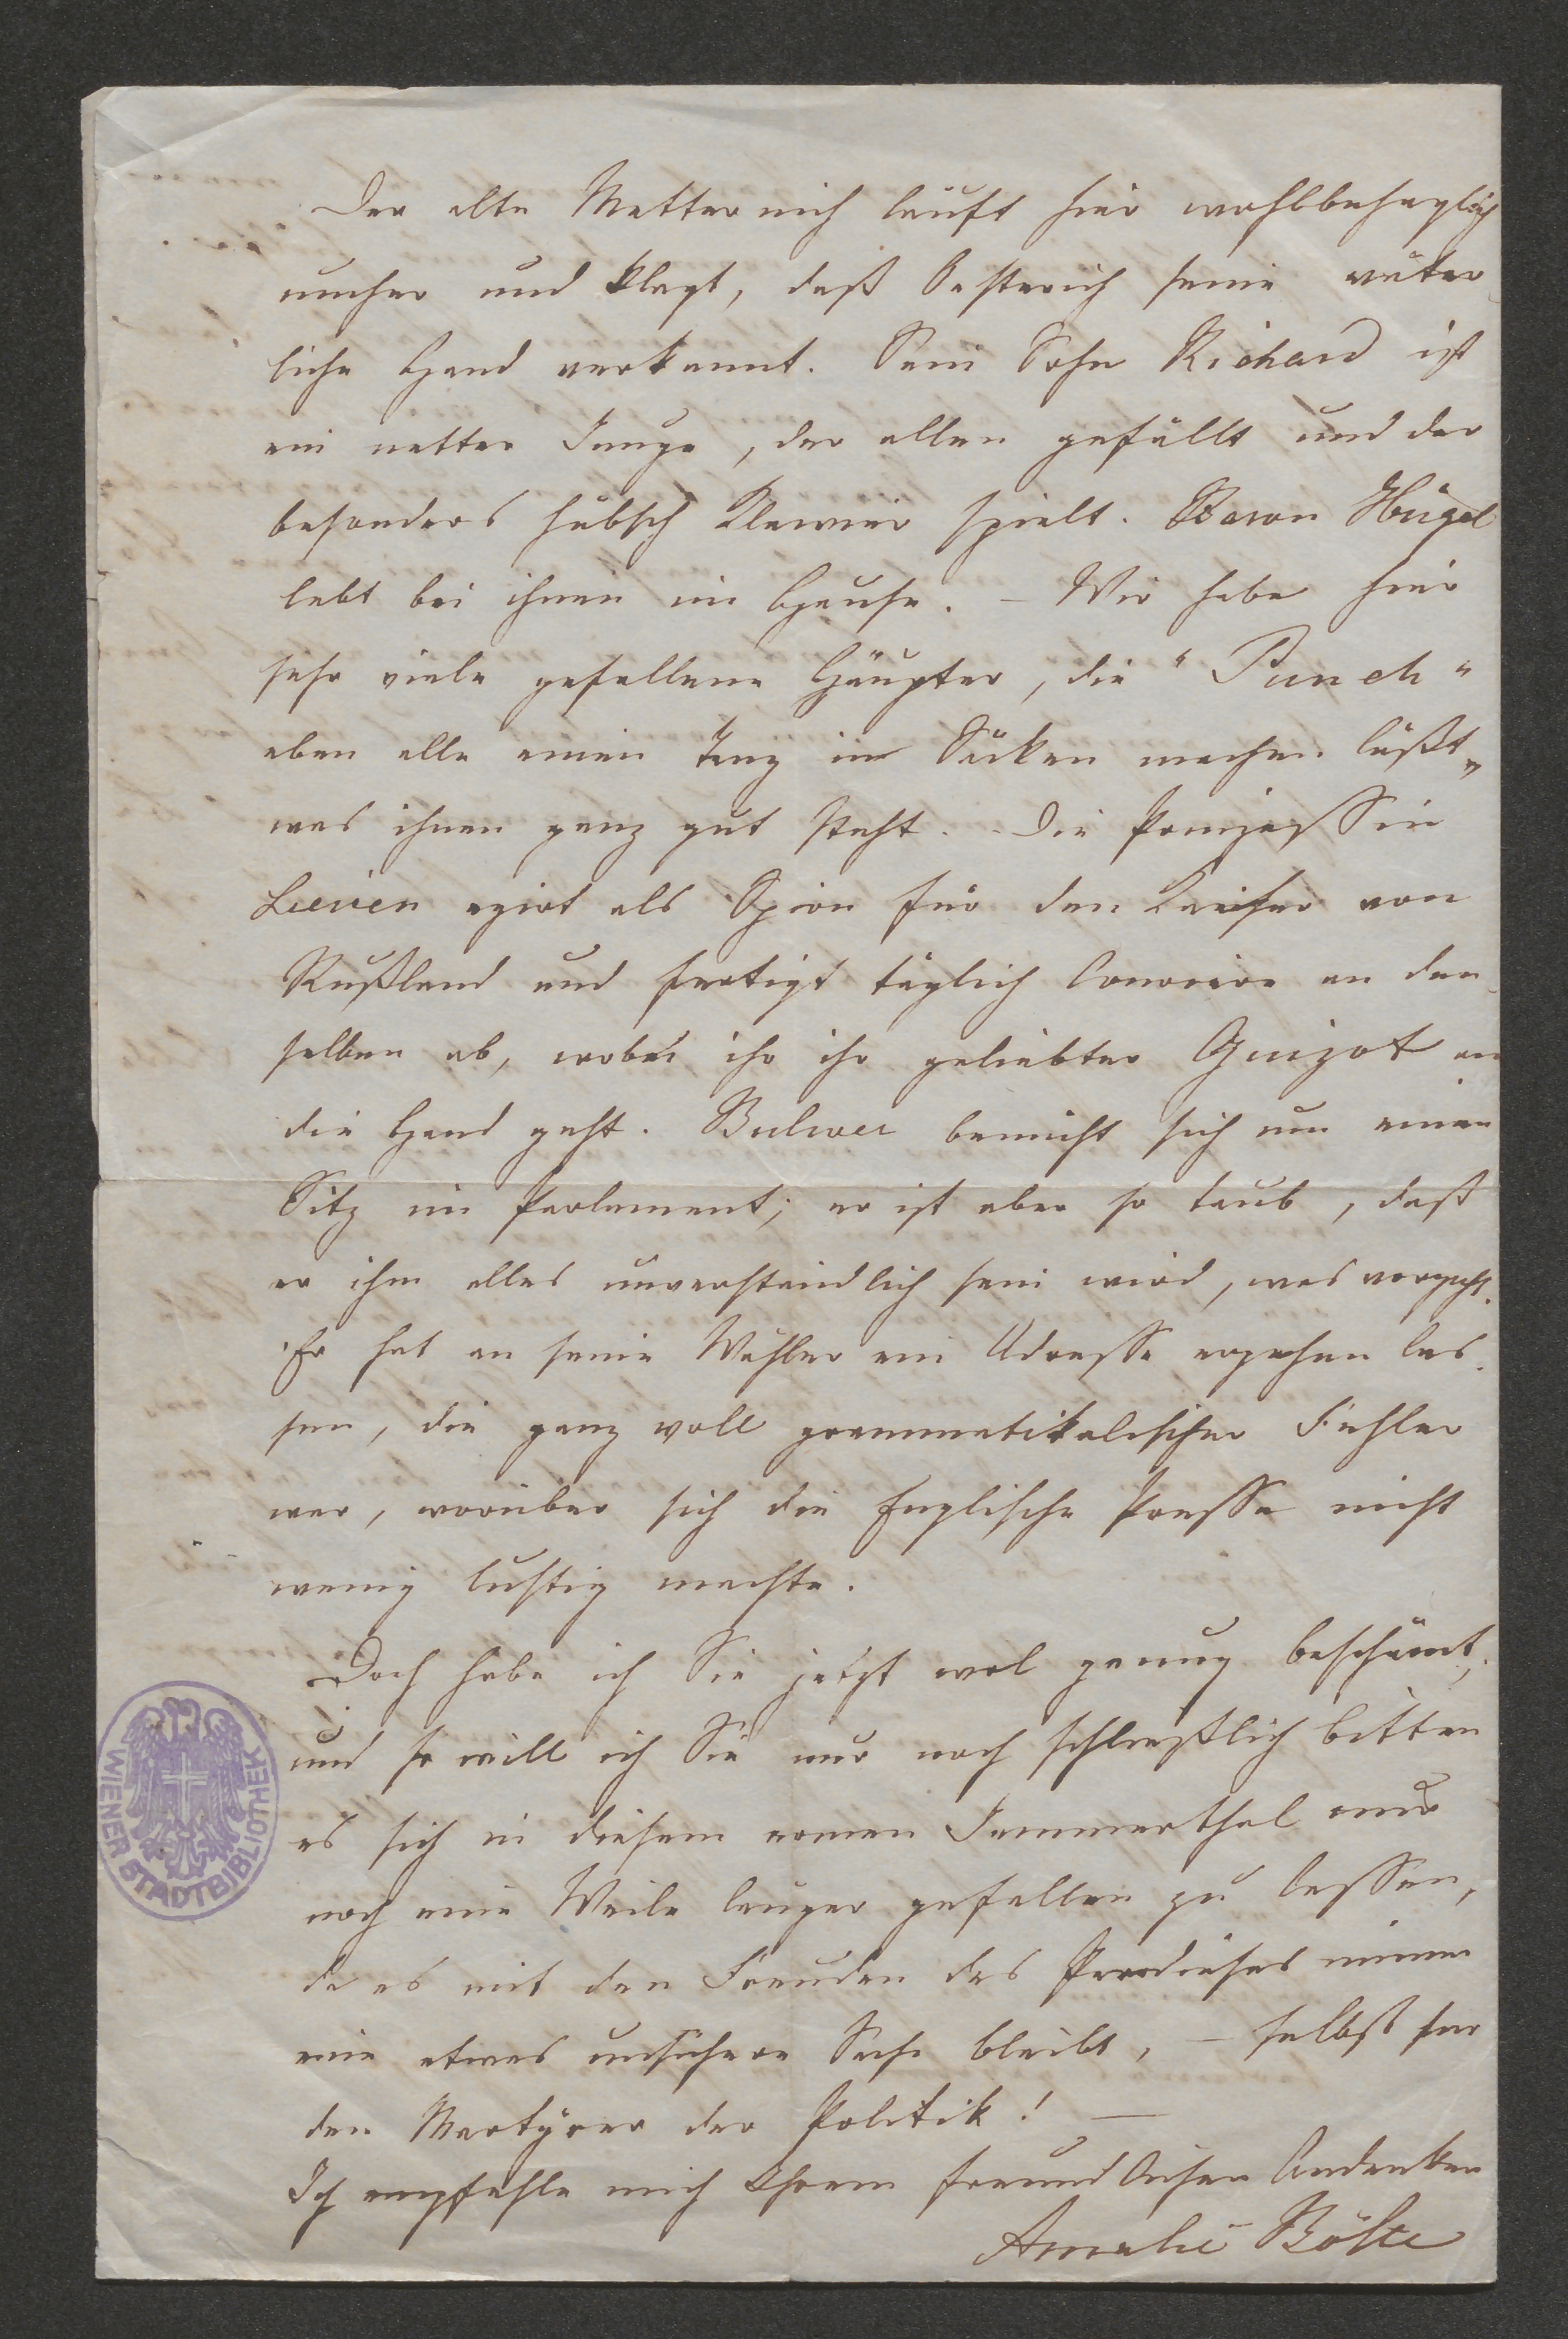 Der alte Metternich läuft hier wohlbehaglich
umher und klagt, daß Oesterich seine väter
liche Hand verkannt. Sein Sohn Richard ist
ein netter Junge, der allen gefällt und der
besonders hübsch Klavier spielt. Baron Hügel
lebt bei ihnen im Hause. – Wir habe hier
sehr viele gefallene Häupter, die "Punch"
eben alle einen Tanz in Säcken machen läßt,
was ihnen ganz gut steht. – Die Prinzessin
Lieven agirt als Spion für den Kaiser von
Rußland und fertigt täglich Couriere an den
selben ab, wobei ihr ihr geliebter Guizot an
die Hand geht. Bulwer bemüht sich um einen
Sitz im Parlament; er ist aber so taub, daß
er ihm alles unverständlich sein wird, was vorgeht.
Er hat an seine Wähler ein Adresse ergehen las
sen, die ganz voll grammatikalischer Fehler
war, worüber sich die Englische Presse nicht
wenig lustig machte.
Doch habe ich Sie jetzt wol genug beschämt,
und so will ich Sie nur noch schließlich bitten
es sich in diesem armen Jammerthal nur
noch eine Weile länger gefallen zu lassen,
da es mit den Freuden des Paradieses immer
eine etwas unsichere Sache bleibt, – selbst für
den Martÿrer der Politik! –
Ich empfehle mich Ihrem freundlichen Andenken
Amalie Bölte
WIENER STADTBIBLIOTHEK